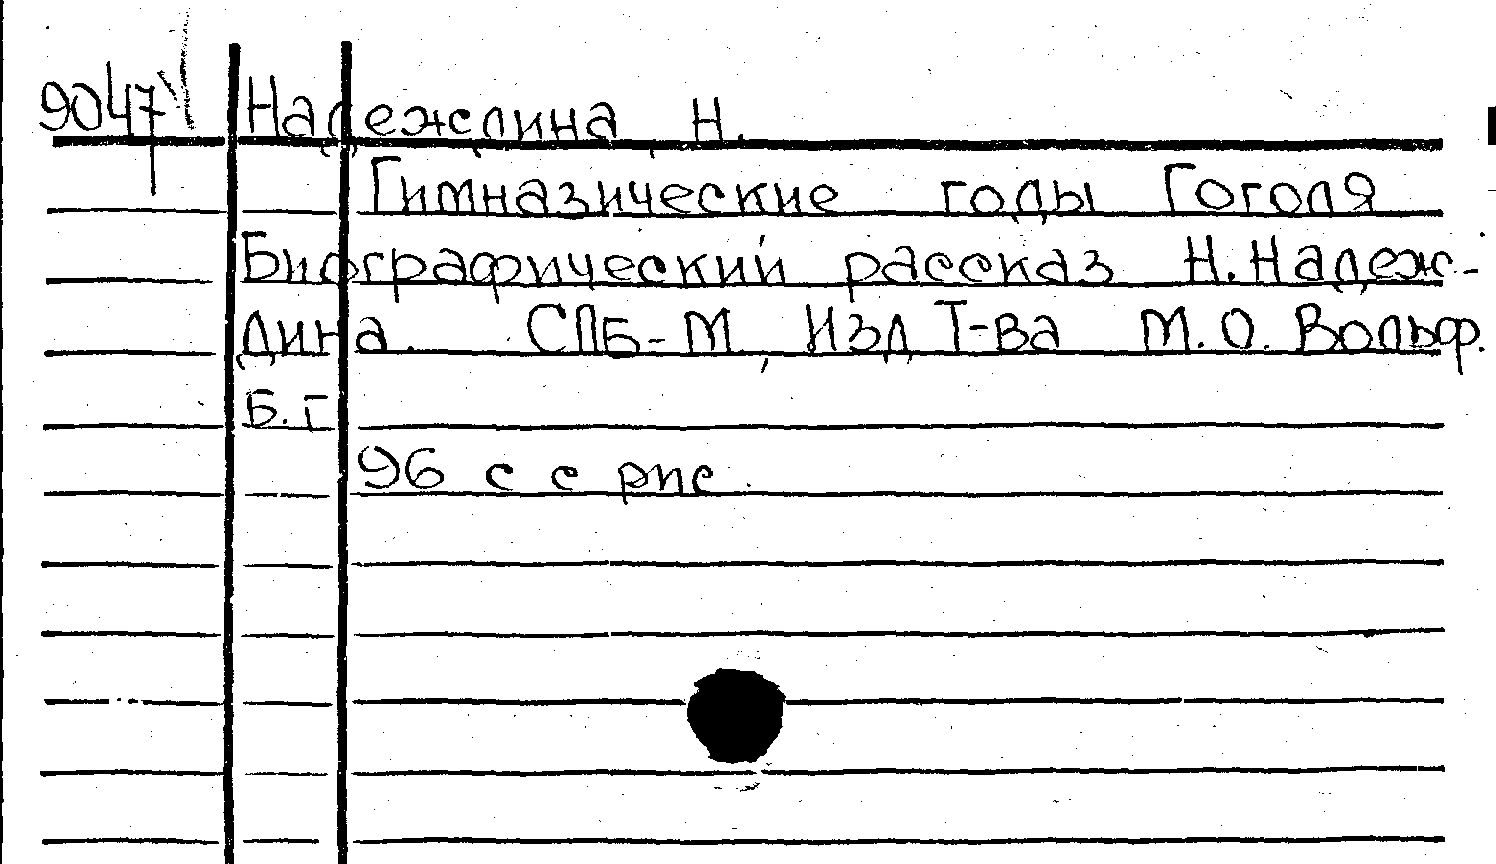 9047 Надеждина, Н.
Гимназические годы Гоголя
Биографический рассказ Н. Надеж-
дина. СПБ-М, Изд Т-ва М.О. Вольф.
Б.г
96 с с рис.